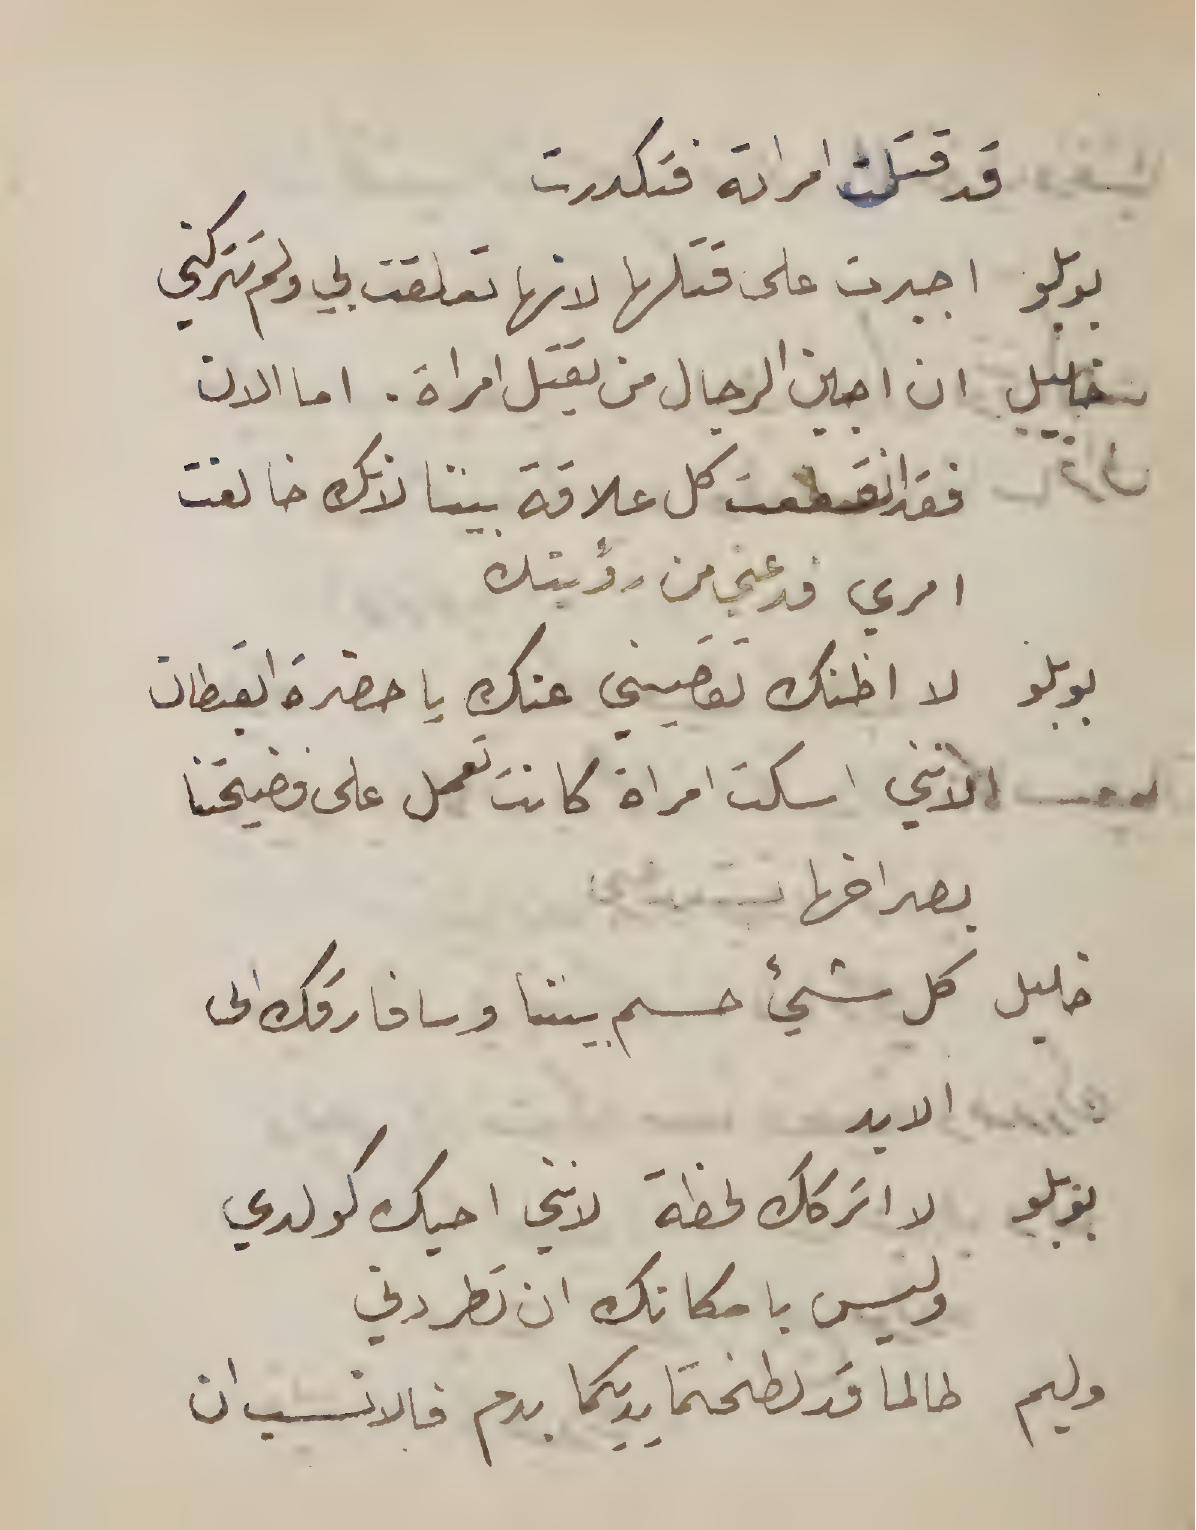 قد قتلت امراته فتكدرت
بوبلو اجبرت على قتلها لانها تعلقت بي ولم تتركني
خليل ان اجبن الرجال من يقتل امراة . اما الان
فقد انقطعت كل علاقة بيننا لانك خالفت
امري فدعني من رؤيتك
بوبلو لا اظنك تقصيني عنك يا حضرة القبطان
لانني اسكت امراة كانت تعمل على فضيحتنا
بصراخها
خليل كل شيئ حسم بيننا وسافارقك الى
الابد
بوبلو لا اتركك لحظة لانني احبك كولدي
وليس بامكانك ان تطردني
وليم طالما قد لطختما يديكما بدم فالانسب ان